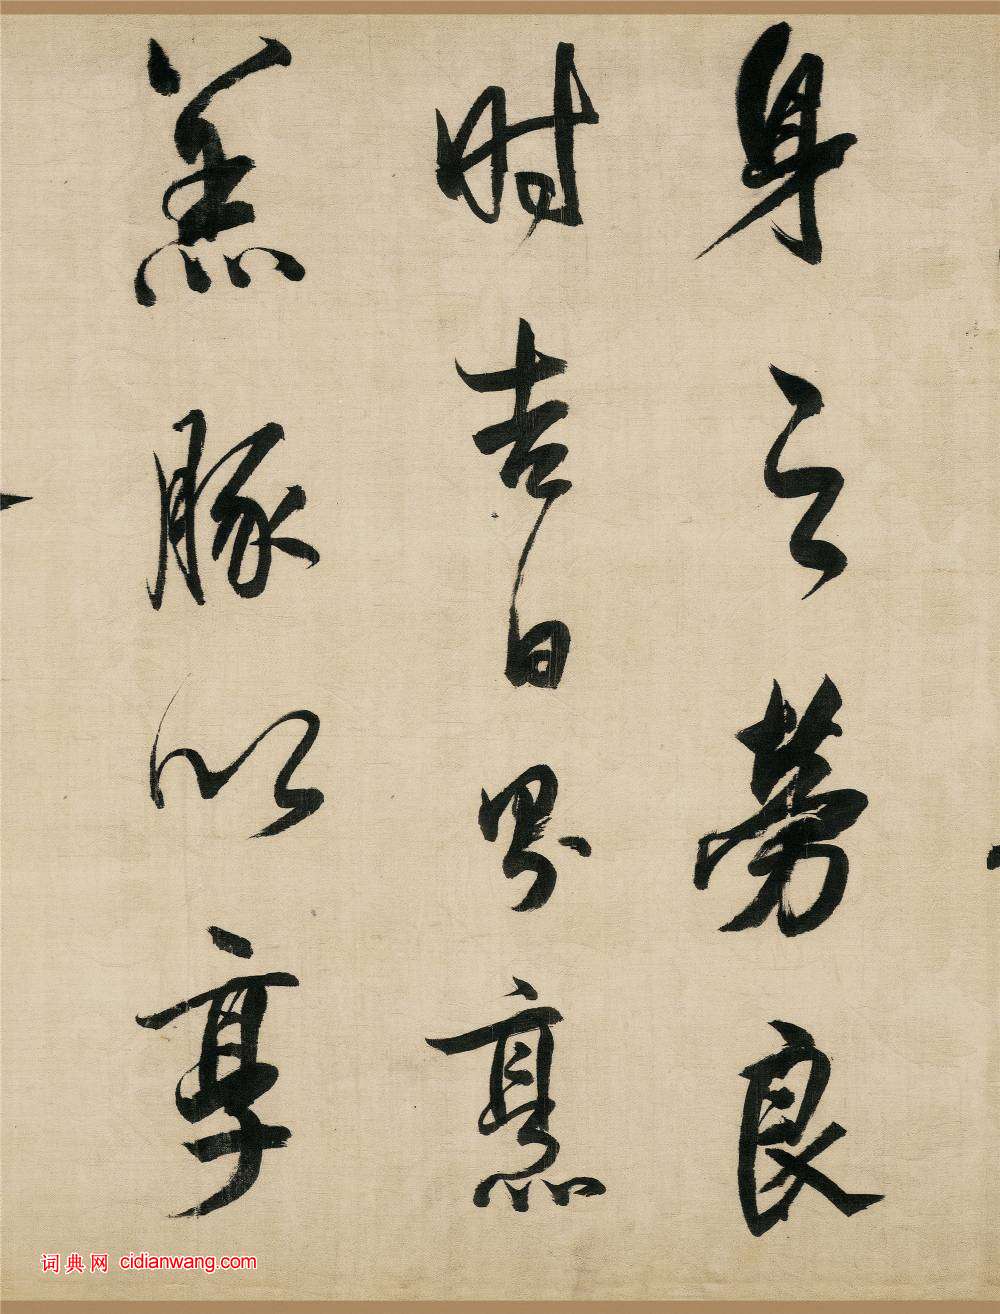 身之勞良
時吉日則烹
羔豚以享
词典网 cidianwang.com